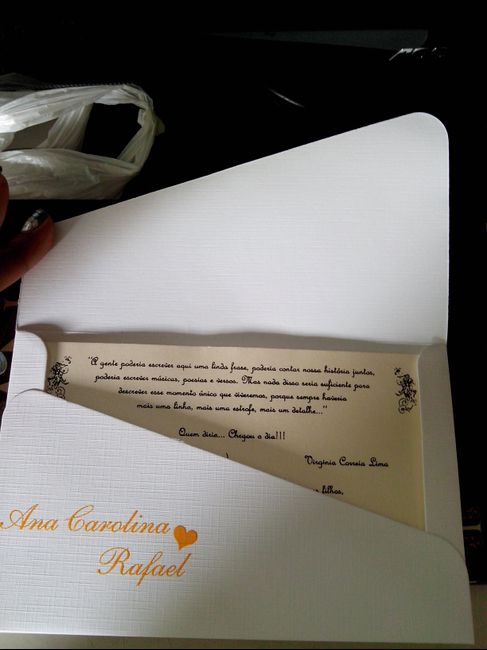 "A gente poderia escrever aqui uma linda frase, poderia contar nossa história juntos,
poderia escrever músicas, poesias e versos. Mas nada disso seria suficiente para
descrever esse momento único que viveremos, porque sempre haveria
mais uma linha, mais uma estrofe, mais um detalhe..."
Quem diria... Chegou o dia!!!
Virgínia Correia Lima
filhos,
Ana Carolina
Rafael